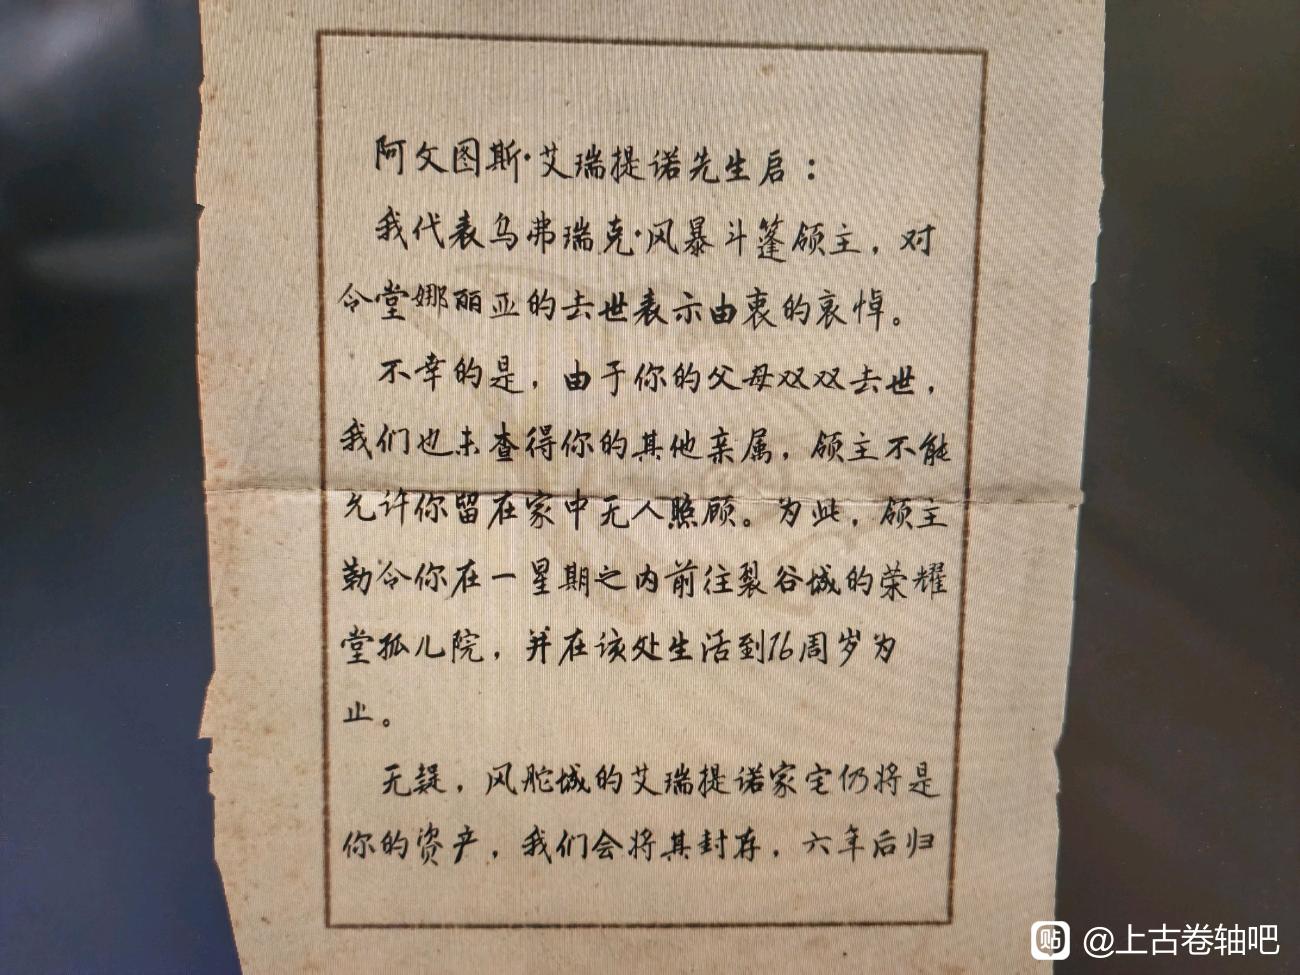 阿文图斯·艾瑞提诺先生启：
我代表乌弗瑞克·风暴斗篷领主，对
令堂娜丽亚的去世表示由衷的哀悼。
不幸的是，由于你的父母双双去世，
我们也未查得你的其他亲属，领主不能
允许你留在家中无人照顾。为此，领主
勒令你在一星期之内前往裂谷城的荣耀
堂孤儿院，并在该处生活到16周岁为
止。
无疑，风舵城的艾瑞提诺家宅仍将是
你的资产，我们会将其封存，六年后归
贴 @上古卷轴吧